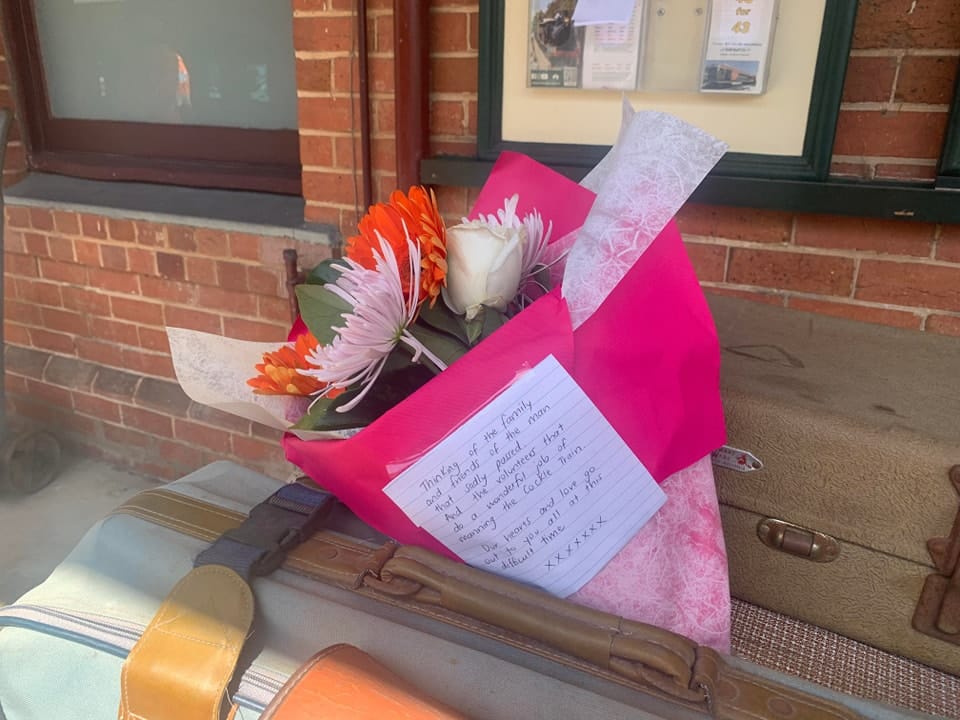 for
43
Thinking of the family
and friends of the man
that sadly passed.
And the volunteers that
do a wonderful job of
manning the Cockle Train.
Our hearts and love go
out to you all at this
difficult time
xxxxxxx